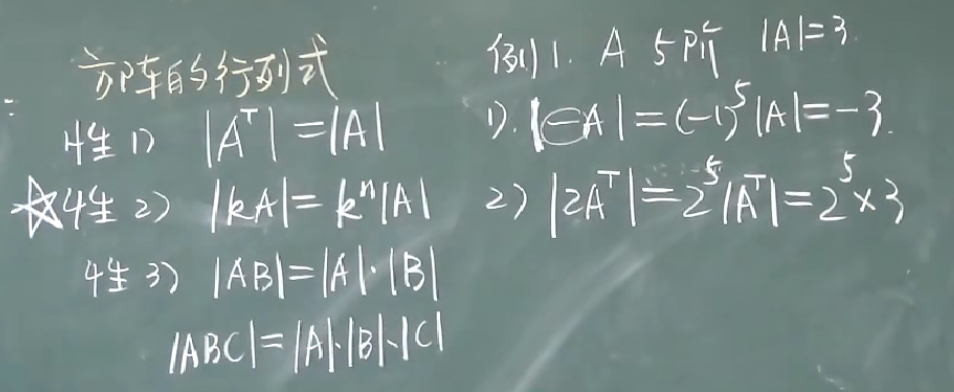 方阵的行列式
性1) |Aᵀ|=|A|
☆性2) |kA|=kⁿ|A|
性3) |AB|=|A|·|B|
|ABC|=|A|·|B|·|C|
例1. A 5阶 |A|=3.
1). |-A|=(-1)⁵|A|=-3.
2) |2Aᵀ|=2⁵|Aᵀ|=2⁵×3